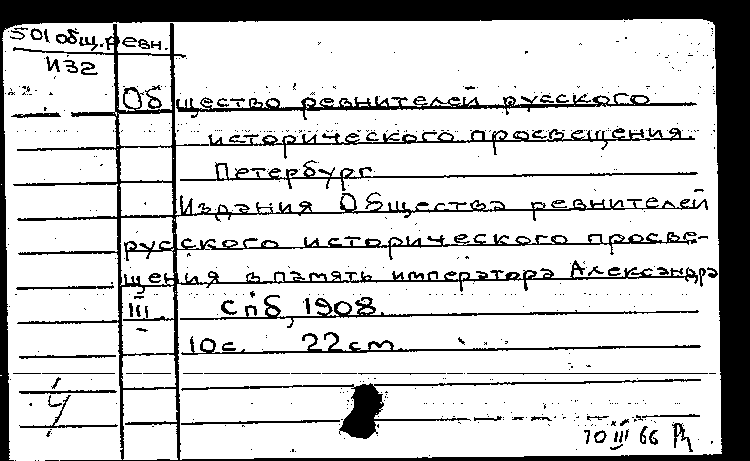 501 общ. ревн.
И32
Общество ревнителей русского
исторического просвещения.
Петербург
Издания Общества ревнителей
русского исторического просве-
щения в память императора Александра
III. Спб, 1908.
10с. 22 cm.
4
10 III 66